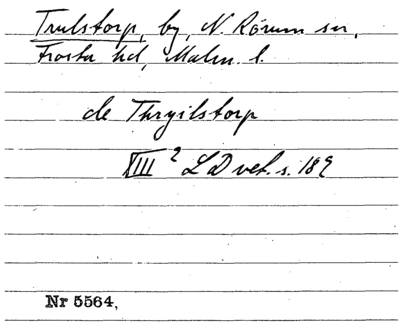 Trulstorp, by, N. Rörum sn,
Frosta hd, Malm. l.
de Thryilstorp
XIII² LD vet. s. 189
Nr 5564,